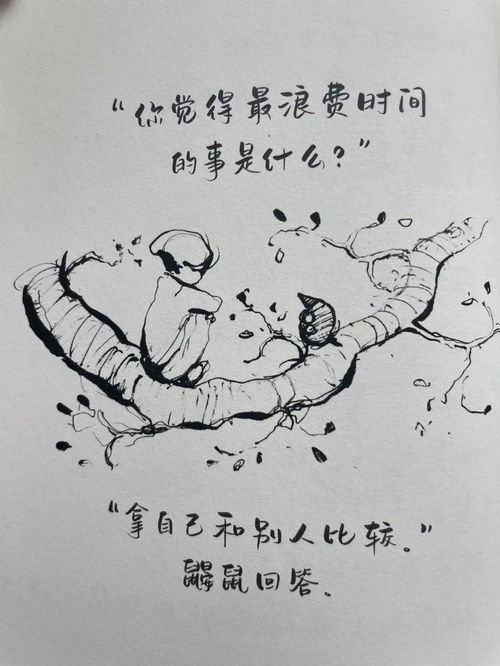 “你觉得最浪费时间
的事是什么？”
“拿自己和别人比较。”
鼹鼠回答.